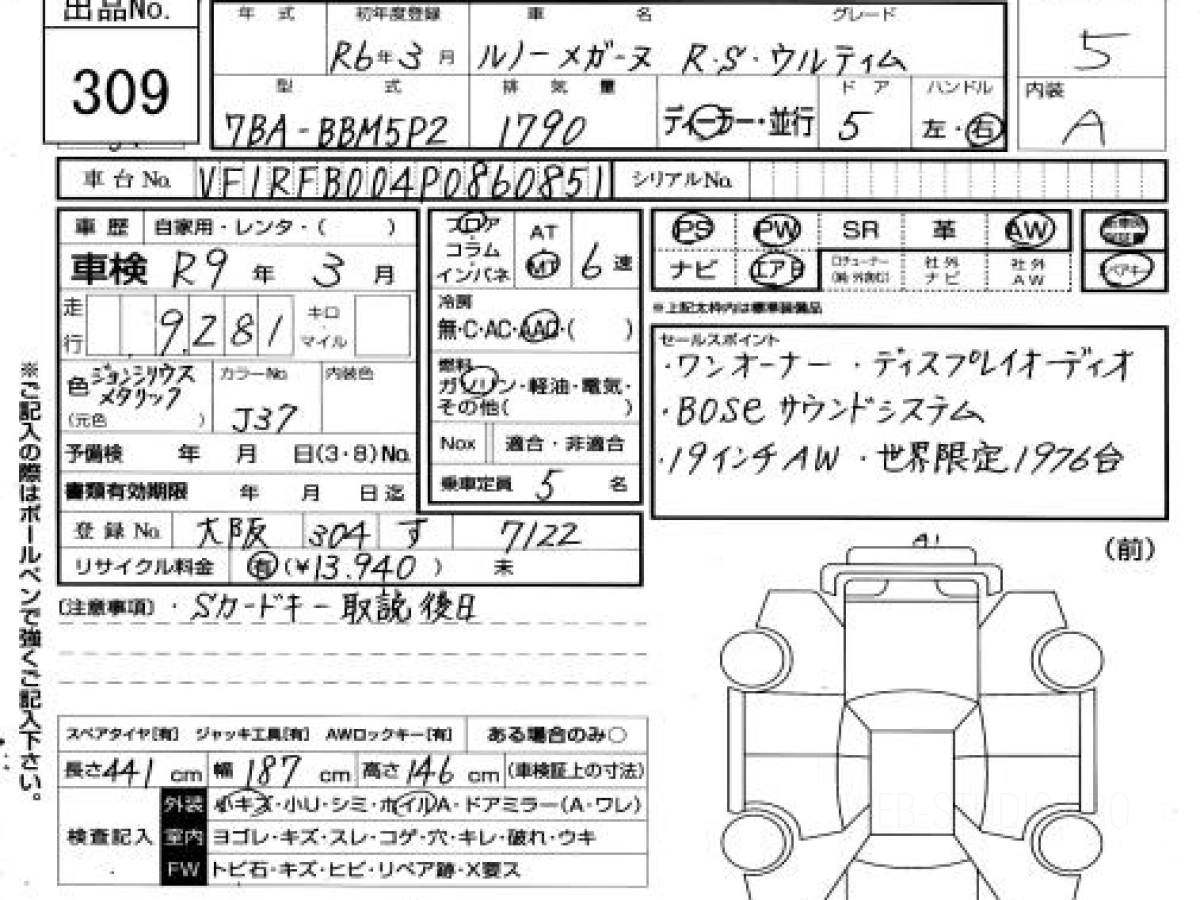 出品No.
309
年式 初年度登録 車名 グレード
R6年3月 ルノーメガーヌ R・S・ウルティム
5
型式 排気量 ドア ハンドル 内装
7BA-BBM5P2 1790 ディーラー・並行 5 左・右 A
車台No. VF1RFB004P0860851 シリアルNo.
車歴 自家用・レンタ・( )
車検 R9年3月
走行 9,281 キロ マイル
色 メタリック (元色 ) カラーNo. J37 内装色
予備検 年 月 日(3・8)No.
書類有効期限 年 月 日迄
登録No. 大阪 304 す 7122
リサイクル料金 有(¥13.940) 未
フロア コラム インパネ AT MT 6速
冷房
無・C・AC・AAC・( )
燃料
ガソリン・軽油・電気・
その他( )
Nox 適合・非適合
乗車定員 5 名
PS PW SR 革 AW
ナビ エアB 社外ナビ 社外AW
※上記太枠内は標準装備品
セールスポイント
・ワンオーナー ・ディスプレイオーディオ
・BOSEサウンドシステム
・19インチAW ・世界限定1976台
(注意事項) ・Sカードキー取説後日
A1
(前)
スペアタイヤ[有] ジャッキ工具[有] AWロックキー[有] ある場合のみ○
長さ441cm 幅187cm 高さ146cm (車検証上の寸法)
検査記入
外装 小キズ・小U・シミ・ホイルA・ドアミラー(A・ワレ)
室内 ヨゴレ・キズ・スレ・コゲ・穴・キレ・破れ・ウキ
FW トビ石・キズ・ヒビ・リペア跡・X要ス
※ご記入の際はボールペンで強くご記入下さい。